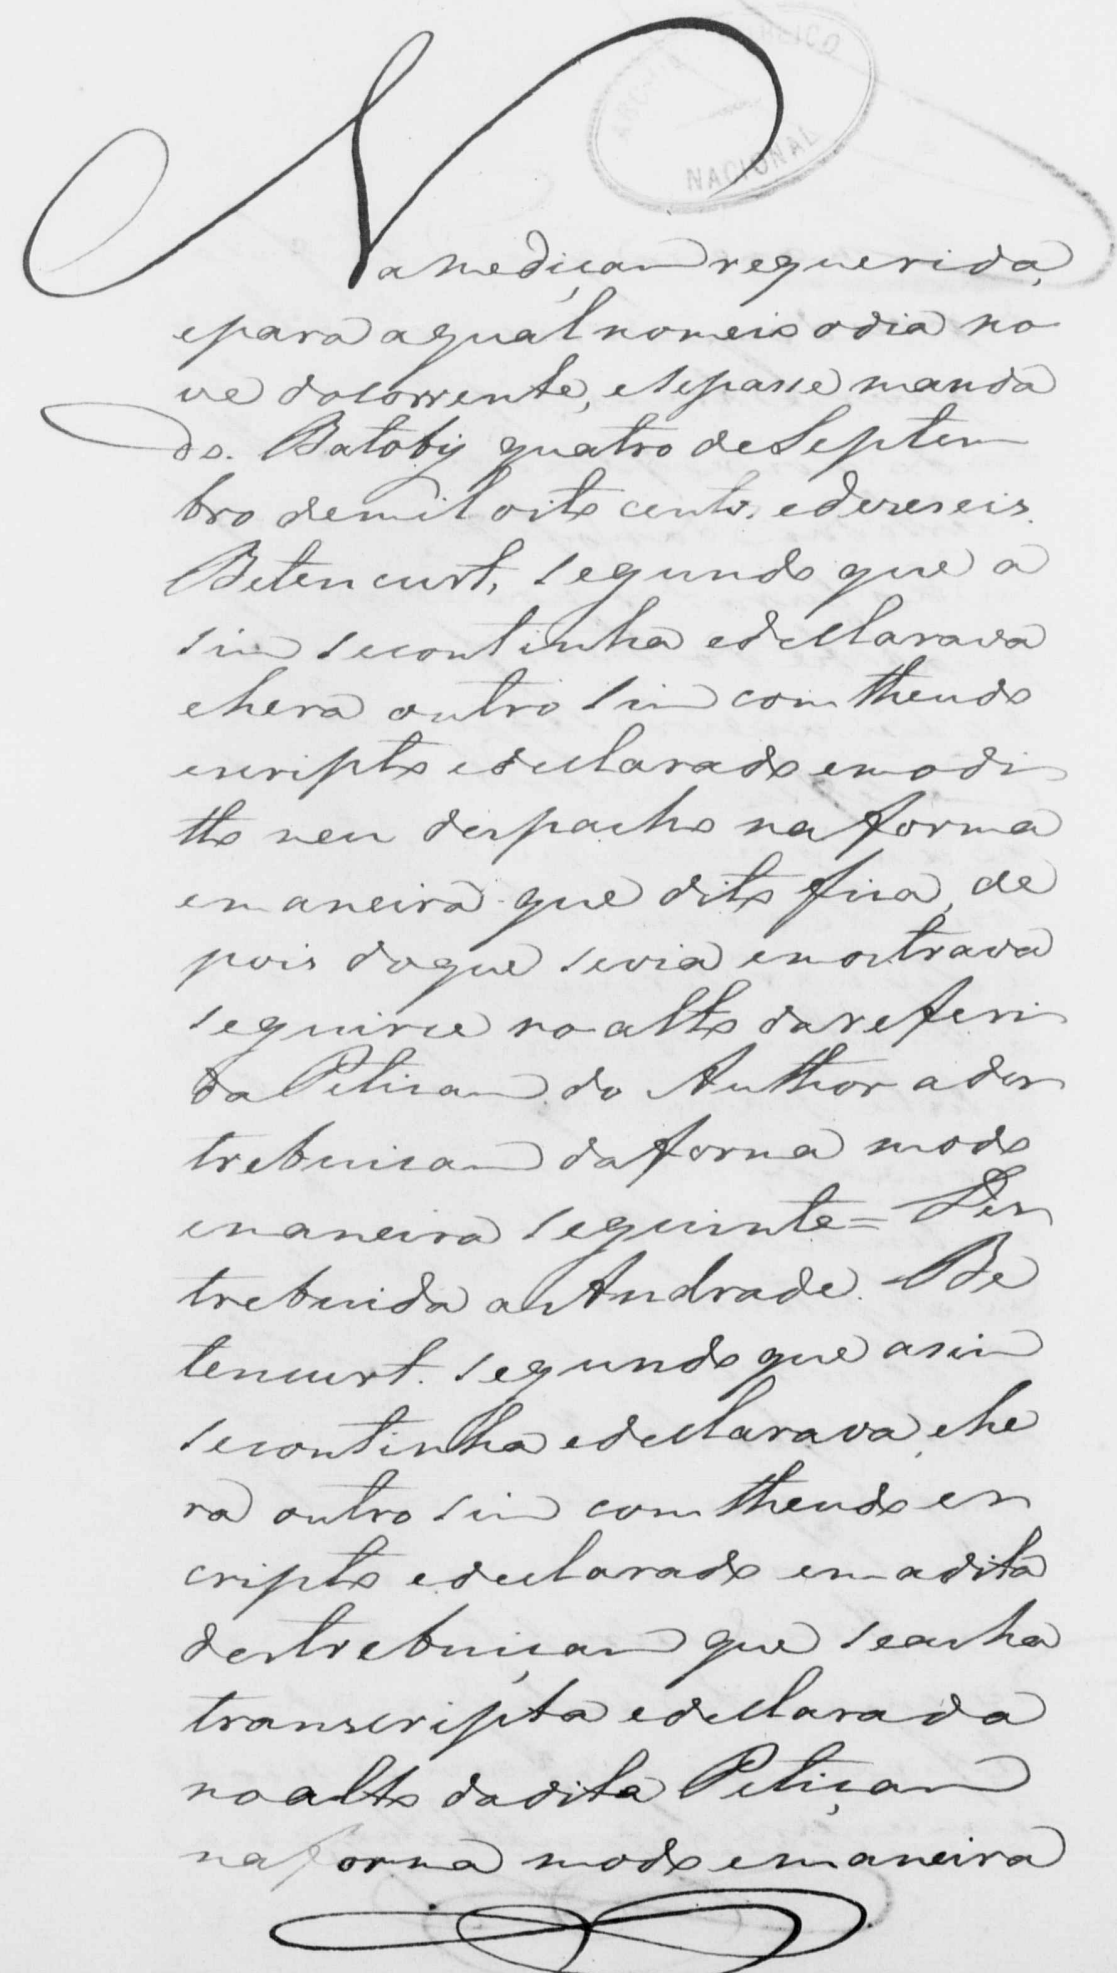 ARCHIVO PUBLICO
NACIONAL
Na mediçam requerida,
epara aqual nomeio odia no
ve docorrente, esepasse manda
do. Batoby quatro de Septem
bro demil oito cento, edezeseis.
Betencurt, segundo que a
sim secontinha edecllarava
ehera outro sim comtheudo
escripto edecllarado emodi
tto seu despacho na forma
emaneira que dito fica, de
pois doque sevia emostrava
seguirce no alto dareferi
da Petican do Author a des
trebuican daforma modo
emaneira seguinte = Des
trebuida a Andrade. Be
tencurt. segundo que asim
secontinha edecllarava, ehe
ra outro sim comtheudo es
cripto edecllarado em adita
destrebuiçam que seacha
transcripta edecllarada
no alto dadita Petiçam
na forma modo emaneira